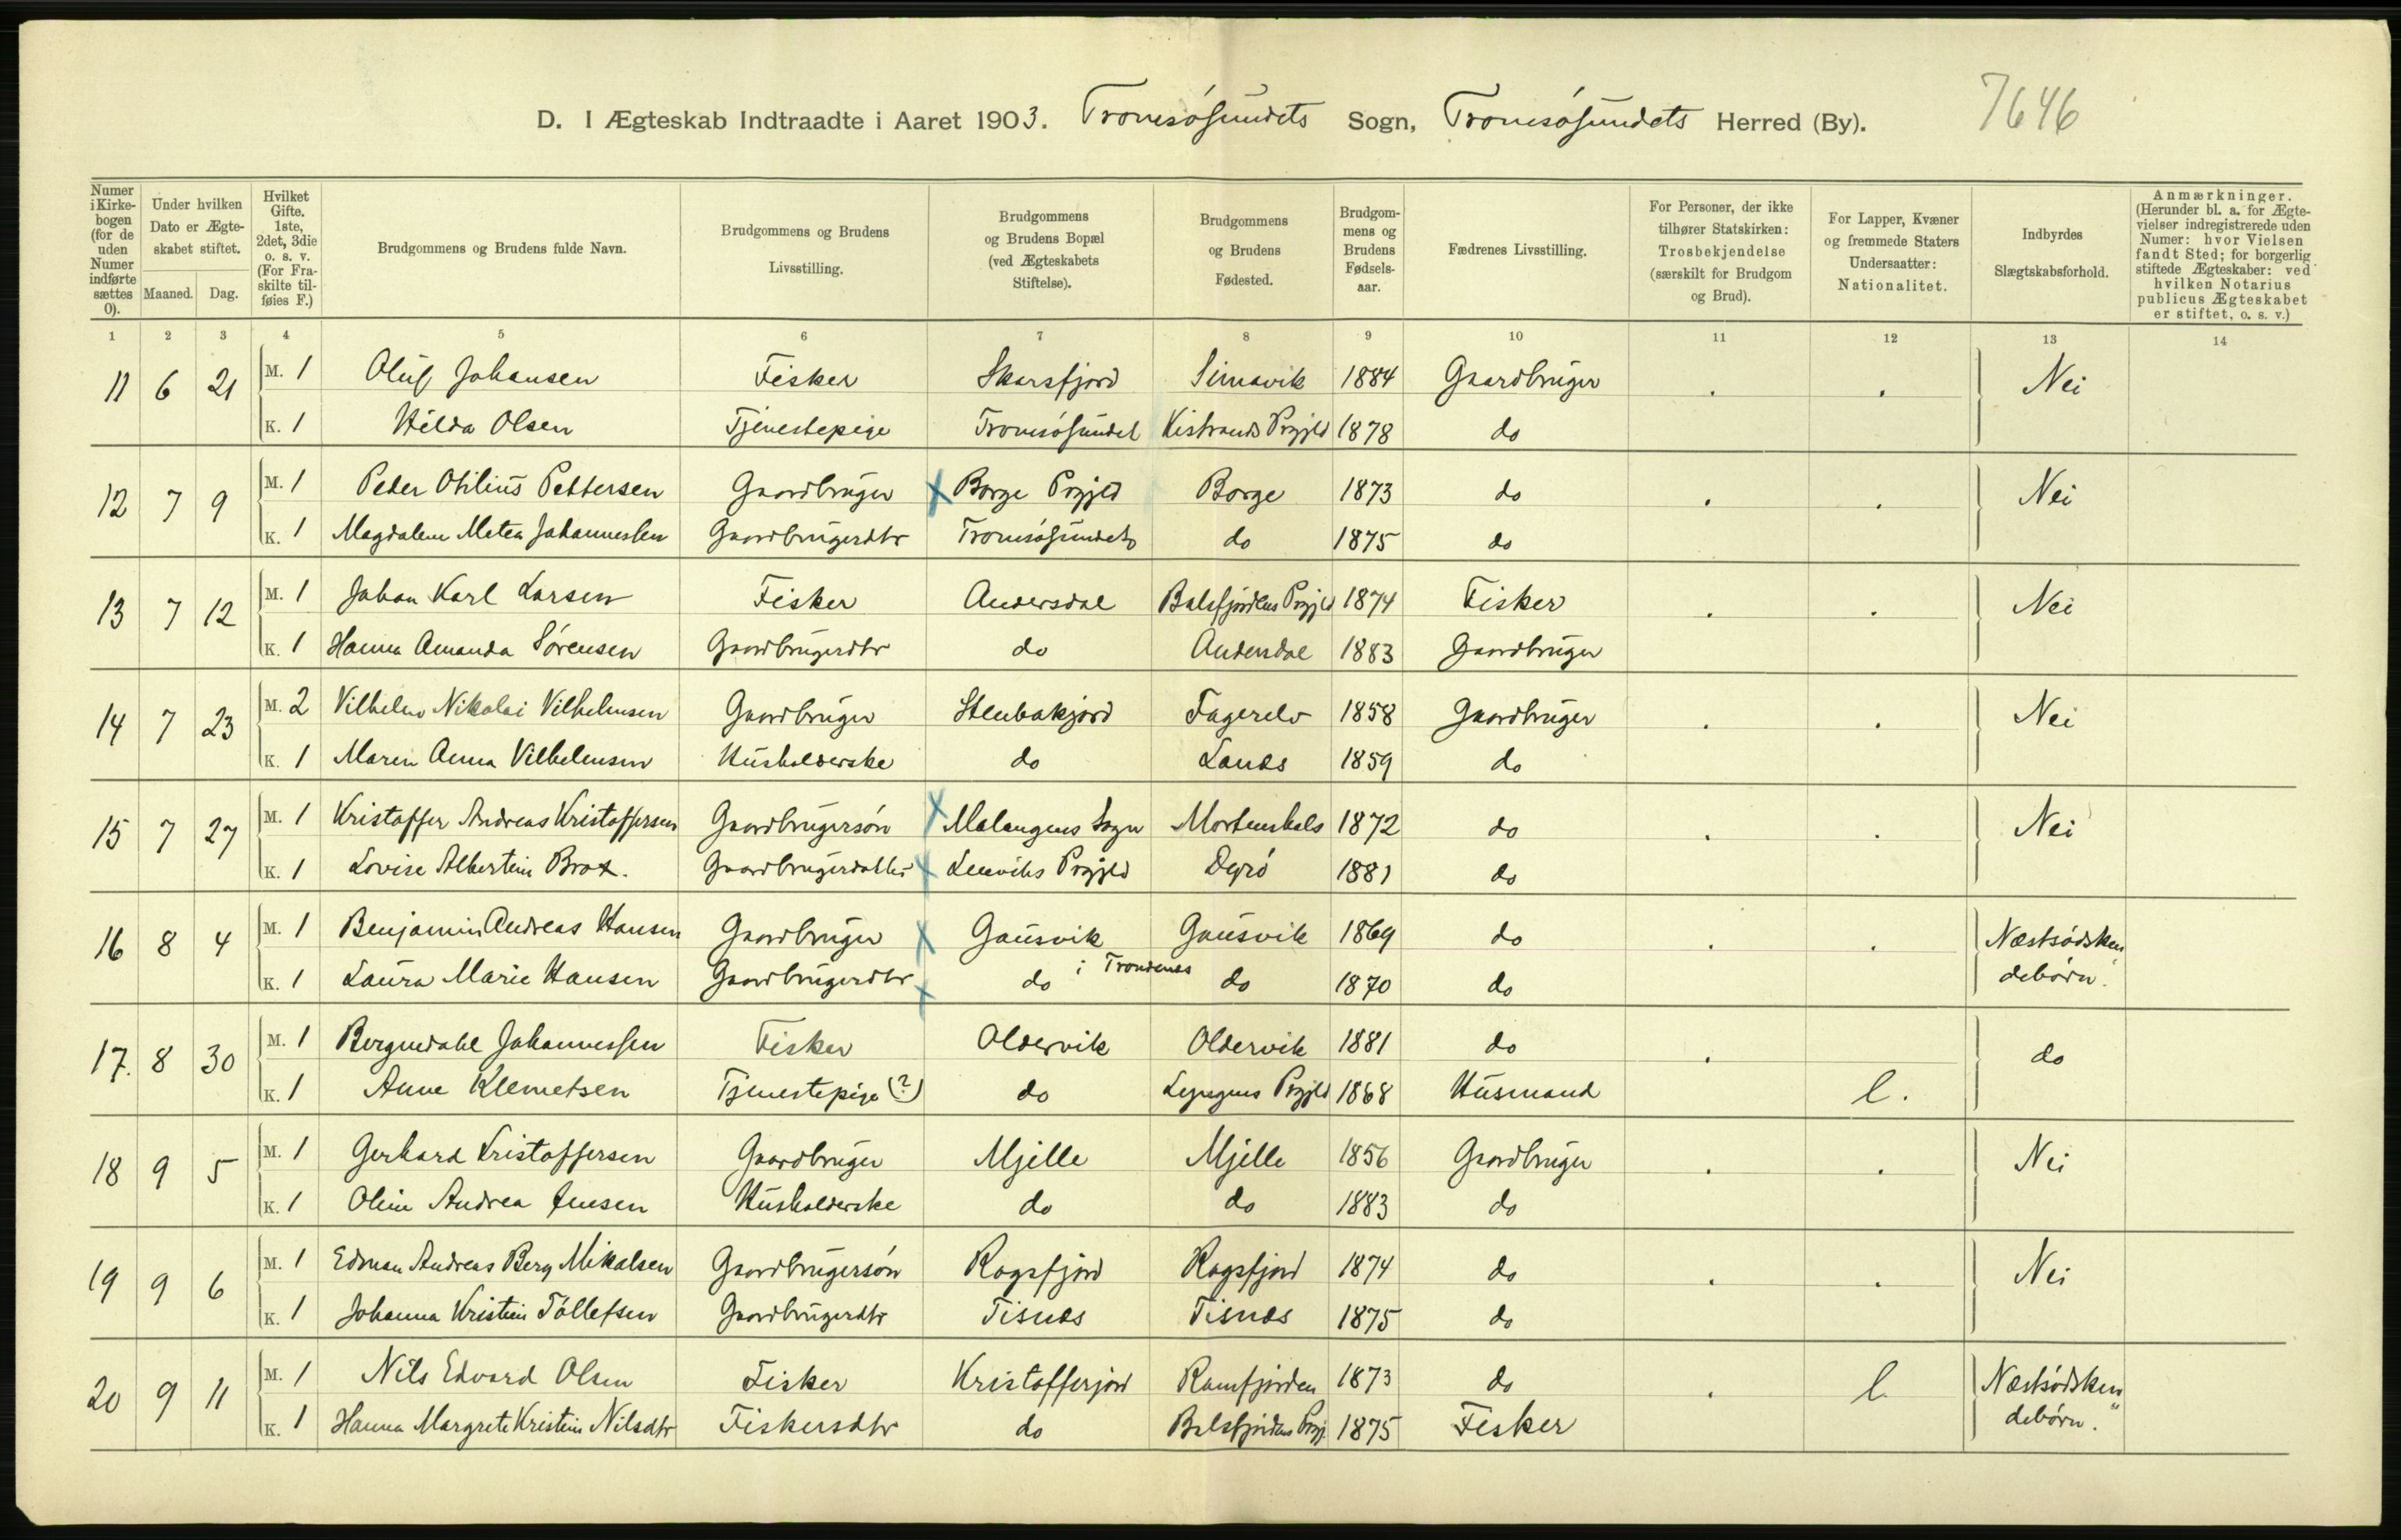 D. I Ægteskab Indtraadte i Aaret 1903. Tromsøsundets Sogn, Tromsøsundets Herred (By). 7646
Numer i Kirkebogen (for de uden Numer indførte sættes 0). | Under hvilken Dato er Ægteskabet stiftet. Maaned. Dag. | Hvilket Gifte. 1ste, 2det, 3die o. s. v. (For Fraskilte tilføies F.) | Brudgommens og Brudens fulde Navn. | Brudgommens og Brudens Livsstilling. | Brudgommens og Brudens Bopæl (ved Ægteskabets Stiftelse). | Brudgommens og Brudens Fødested. | Brudgommens og Brudens Fødselsaar. | Fædrenes Livsstilling. | For Personer, der ikke tilhører Statskirken: Trosbekjendelse (særskilt for Brudgom og Brud). | For Lapper, Kvæner og fremmede Staters Undersaatter: Nationalitet. | Indbyrdes Slægtskabsforhold. | Anmærkninger. (Herunder bl. a. for Ægtevielser indregistrerede uden Numer: hvor Vielsen fandt Sted; for borgerlig stiftede Ægteskaber: ved hvilken Notarius publicus Ægteskabet er stiftet, o. s. v.)
1 2 3 4 5 6 7 8 9 10 11 12 13 14
11 6 21 M. 1 Oluf Johansen Fisker Skarsfjord Simavik 1884 Gaardbruger . . Nei
K. 1 Hilda Olsen Tjenestepige Tromsøsundet Kistrands Prgjld 1878 do
12 7 9 M. 1 Peder Otilius Pettersen Gaardbruger x Borge Prgjld Borge 1873 do . . Nei
K. 1 Magdalene Matea Johannessen Gaardbrugerdtr Tromsøsundets do 1875 do
13 7 12 M. 1 Johan Karl Larsen Fisker Andersdal Balsfjordens Prgjld 1874 Fisker . . Nei
K. 1 Hanna Amanda Sørensen Gaardbrugerdtr do Andersdal 1883 Gaardbruger
14 7 23 M. 2 Vilhelm Nikolai Vilhelmsen Gaardbruger Stenbakjord Fagerelv 1858 Gaardbruger . . Nei
K. 1 Maren Anna Vilhelmsen Husholderske do Lanes 1859 do
15 7 27 M. 1 Kristoffer Andreas Kristoffersen Gaardbrugersøn x Malangens Sogn Mortenhals 1872 do . . Nei
K. 1 Lovise Albertine Brox. Gaardbrugerdatter x Lenviks Prgjld Dyrø 1881 do
16 8 4 M. 1 Benjamin Andreas Hansen Gaardbruger x Gausvik Gausvik 1869 do . . Næstsødsken
i Trondenes
K. 1 Laura Marie Hansen Gaardbrugerdtr x do do 1870 do debørn.
17. 8 30 M. 1 Bergmedahl Johannessen Fisker Oldervik Oldervik 1881 do . do
K. 1 Anne Klemetsen Tjenestepige (?) do Lyngens Prgjld 1868 Husmand l.
18 9 5 M. 1 Gerhard Kristoffersen Gaardbruger Mjelle Mjelle 1856 Gaardbruger . . Nei
K. 1 Oline Andrea Jensen Husholderske do do 1883 do
19 9 6 M. 1 Edman Andreas Berg Mikalsen Gaardbrugersøn Ragsfjord Ragsfjord 1874 do . . Nei
K. 1 Johanna Kristine Tollefsen Gaardbrugerdtr Tisnes Tisnes 1875 do
20 9 11 M. 1 Nils Edvard Olsen Fisker Kristofferjord Ramfjorden 1873 do . l Næstsødsken
K. 1 Hanna Margrete Kristine Nilsdtr Fiskersdtr do Balsfjordens Prgj. 1875 Fisker debørn."